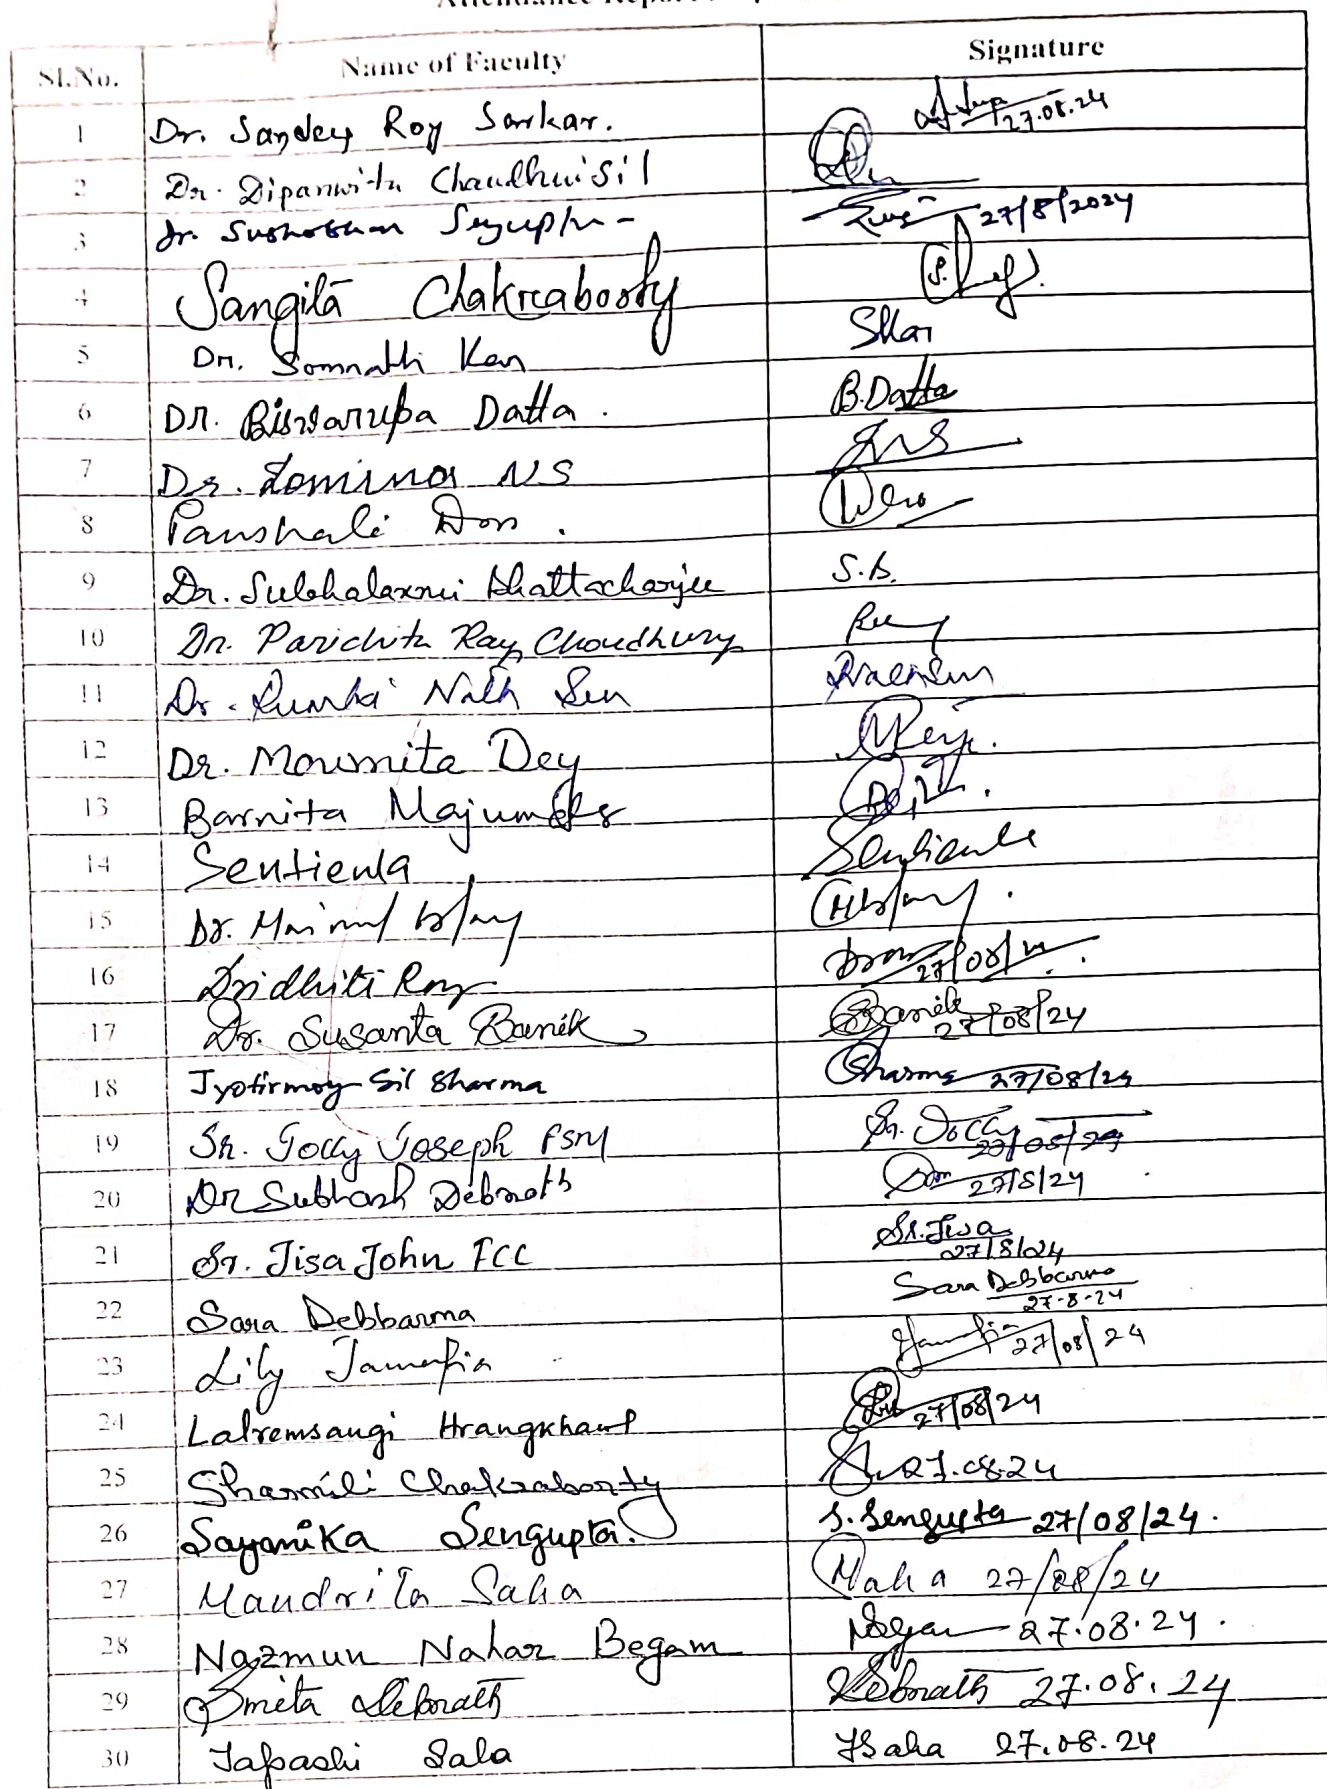 Attendance Report
Sl.No. Name of Faculty Signature
1 Dr. Sandeep Roy Sarkar. 27.08.24
2 Dr. Dipanwita Chaudhuri Sil
3 Dr. Sushobhan Sengupta 27/8/2024
4 Sangita Chakraborty
5 Dr. Somnath Kar SKar
6 Dr. Biswarupa Datta. B.Datta
7 Dr. Lomina NS
8 Panshali Das.
9 Dr. Subhalaxmi Bhattacharjee S.B.
10 Dr. Parichita Ray Choudhury
11 Dr. Rumki Nath Sen
12 Dr. Moumita Dey
13 Barnita Majumder
14 Sentienla Sentienla
15 Dr.
16 Dridhiti Roy 27/08/24
17 Dr. Susanta Banik Banik 27/08/24
18 Jyotirmoy Sil Sharma Sharma 27/08/24
19 Sr. Jolly Joseph FSM Sr. Jolly
20 Dr Subhash Debnath 27/8/24
21 Sr. Jisa John FCC Sr. Jisa 27/8/24
22 Sara Debbarma Sara Debbarma 27-8-24
23 Lily 27/08/24
24 Lalremsangi Hrangkhawl 27/08/24
25 Sharmili Chakraborty 27.08.24
26 Sayanika Sengupta. S. Sengupta 27/08/24.
27 Mandrita Saha 27/08/24
28 Nazmun Nahar Begam 27.08.24.
29 Smita Debnath Debnath 27.08.24
30 Tapashi Saha TSaha 27.08.24